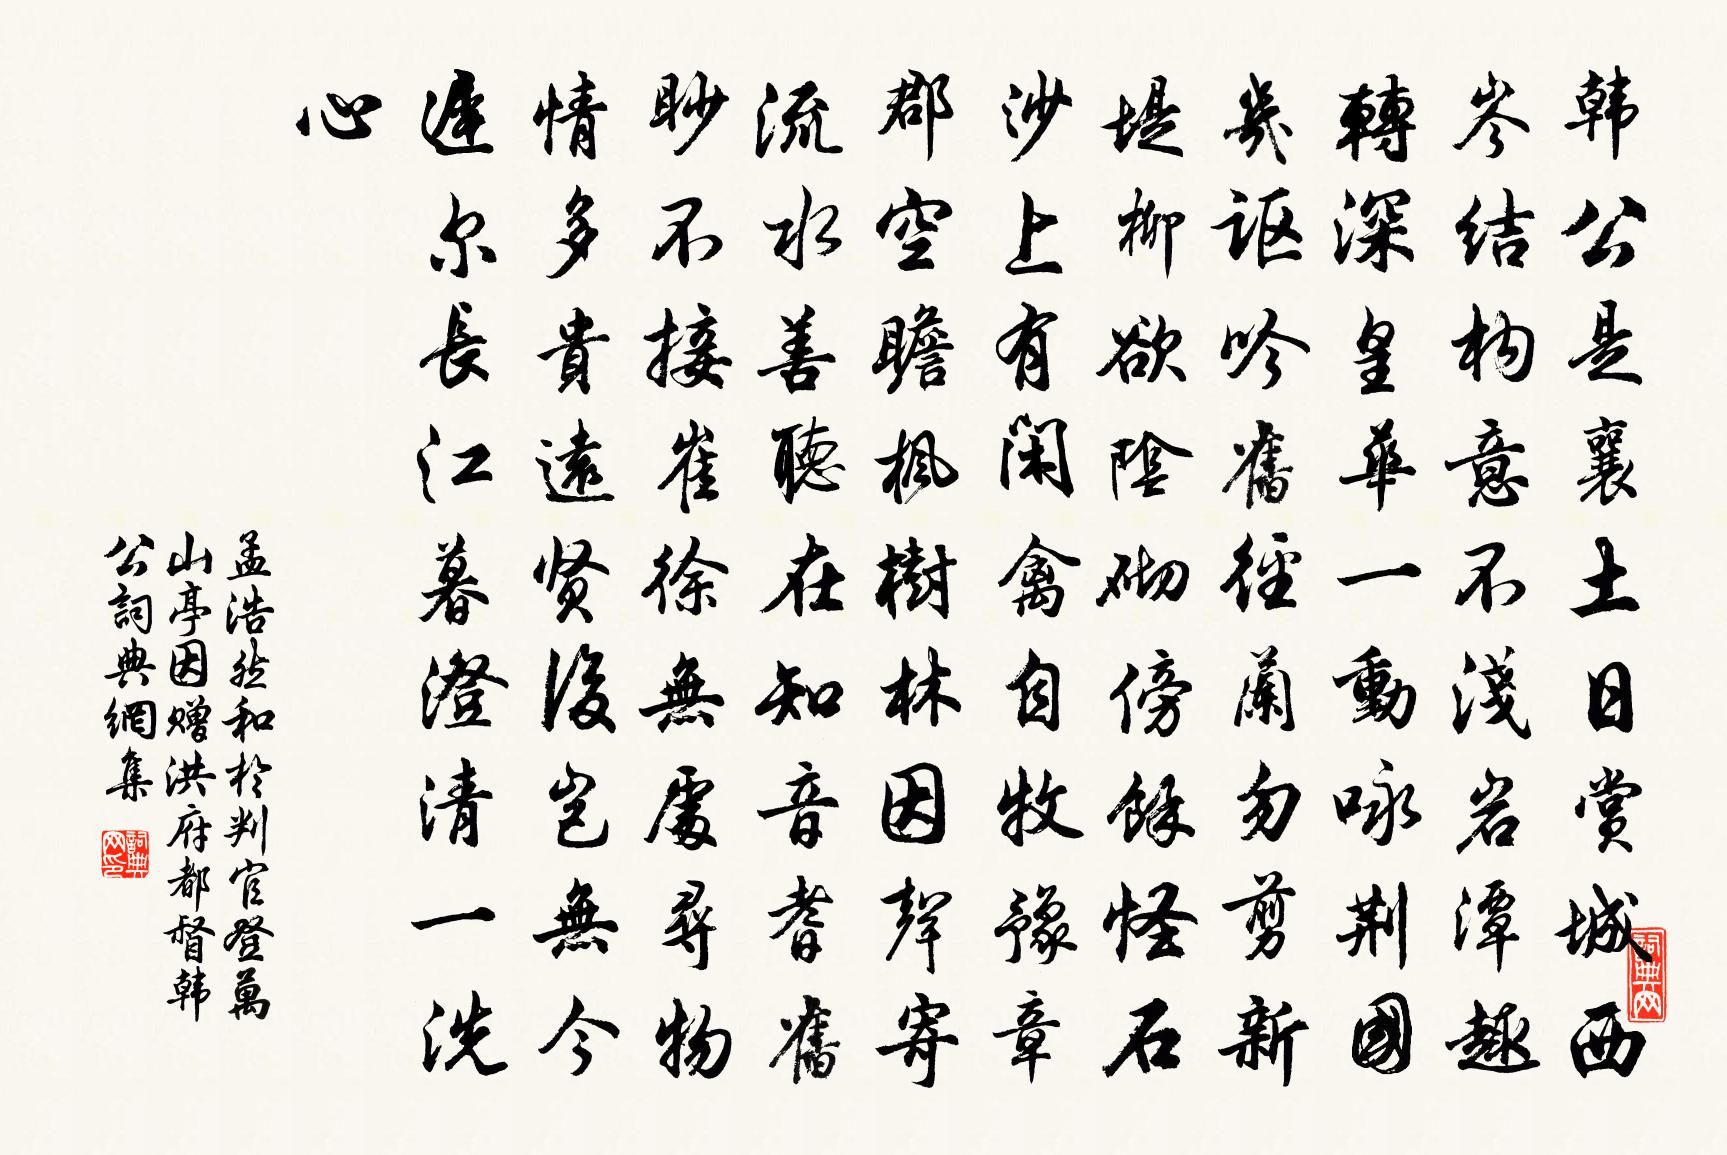 韩公是襄土日赏城西
岑结构意不淺岩潭趣
轉深皇華一動咏荆國
幾讴吟舊徑蘭勿剪新
堤柳欲陰砌傍餘怪石
沙上有閑禽自牧豫章
郡空瞻楓樹林因聲寄
流水善聽在知音耆舊
眇不接崔徐無處尋物
情多貴遠贤後岂無今
遲尔長江暮澄清一洗
心
孟浩然和於判官登萬
山亭因赠洪府都督韩
公詞典網集
詞典网
詞典网印